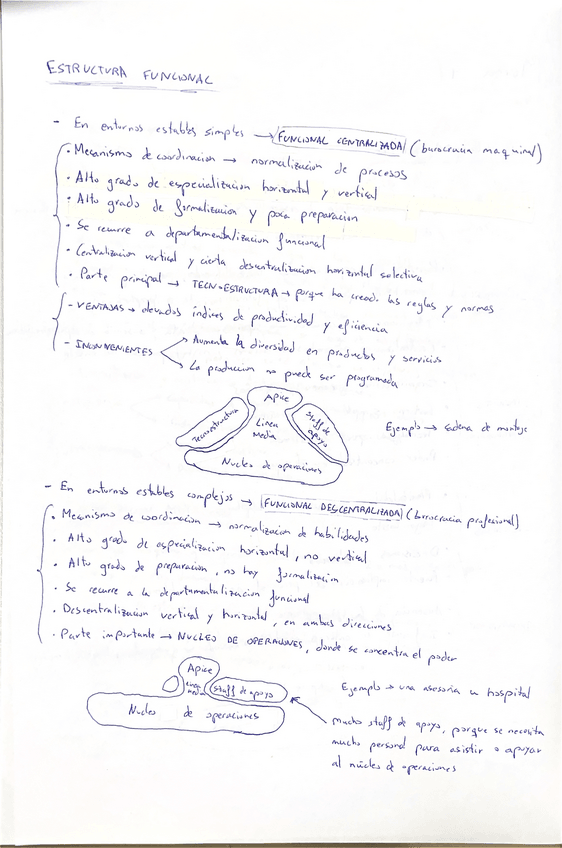 ESTRUCTURA FUNCIONAL
- En entornos estables simples → FUNCIONAL CENTRALIZADA (burocracia maquinal)
· Mecanismo de coordinacion → normalizacion de procesos
· Alto grado de especializacion horizontal y vertical
· Alto grado de formalizacion y poca preparacion
· Se recurre a departamentalizacion funcional
· Centralizacion vertical y cierta descentralizacion horizontal selectiva
· Parte principal → TECNOESTRUCTURA → porque ha creado las reglas y normas
- VENTAJAS → elevados indices de productividad y eficiencia
- INCONVENIENTES
→ Aumenta la diversidad en productos y servicios
→ La produccion no puede ser programada
Apice
Tecnoestructura
Linea Media
Staff de apoyo
Nucleo de operaciones
Ejemplo → cadena de montaje
- En entornos estables complejos → FUNCIONAL DESCENTRALIZADA (burocracia profesional)
· Mecanismo de coordinacion → normalizacion de habilidades
· Alto grado de especializacion horizontal, no vertical
· Alto grado de preparacion, no hay formalizacion
· Se recurre a la departamentalizacion funcional
· Descentralizacion vertical y horizontal, en ambas direcciones
· Parte importante → NUCLEO DE OPERACIONES, donde se concentra el poder
Apice
Linea media
Staff de apoyo
Nucleo de operaciones
Ejemplo → una asesoria u hospital
mucho staff de apoyo, porque se necesita
mucho personal para asistir o apoyar
al núcleo de operaciones